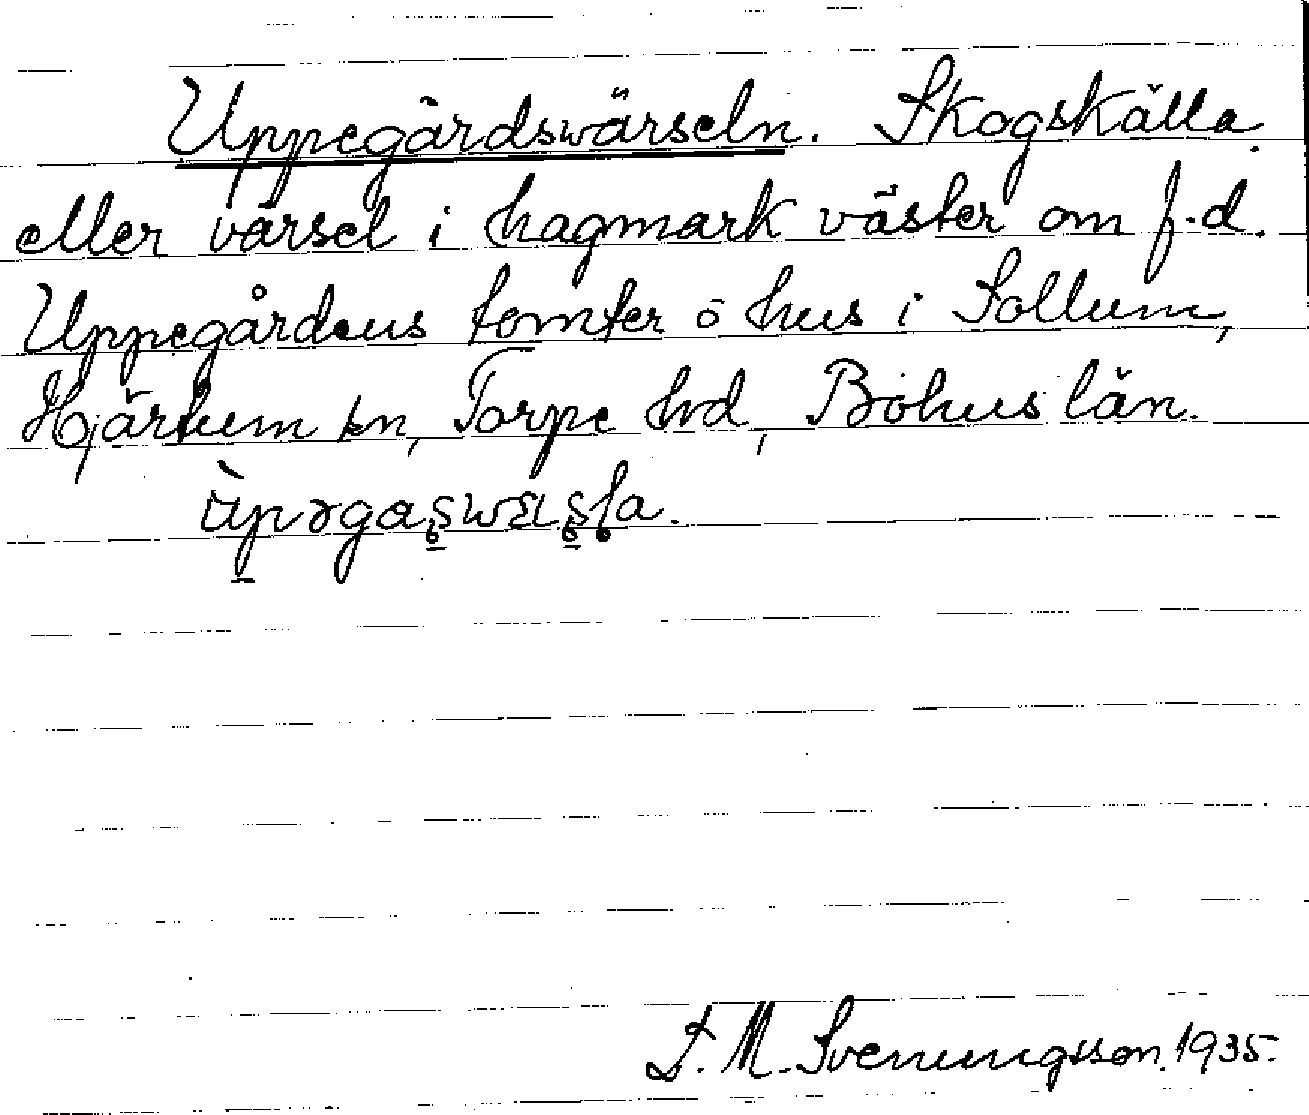 Uppegårdswärseln. Skogskälla
eller värsel i hagmark väster om f.d.
Uppegårdens tomter o hus i Sollum,
Hjärtum sn, Torpe hd, Bohus län.
S. M. Svenungsson. 1935.